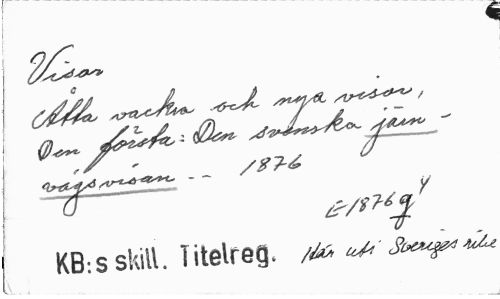 Visor
Åtta vackra och nya visor,
Den första: Den svenska järn-
vägsvisan -- 1876
E1876g
KB:s skill. Titelreg.
Här uti Sveriges rike